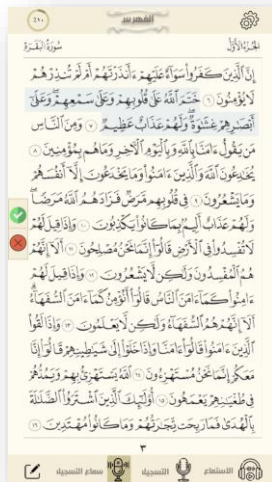 الفهرس
الجزء الأول
سورة البقرة
إِنَّ ٱلَّذِينَ كَفَرُوا۟ سَوَآءٌ عَلَيْهِمْ ءَأَنذَرْتَهُمْ أَمْ لَمْ تُنذِرْهُمْ
لَا يُؤْمِنُونَ ٦ خَتَمَ ٱللَّهُ عَلَىٰ قُلُوبِهِمْ وَعَلَىٰ سَمْعِهِمْ ۖ وَعَلَىٰٓ
أَبْصَـٰرِهِمْ غِشَـٰوَةٌ ۖ وَلَهُمْ عَذَابٌ عَظِيمٌ ٧ وَمِنَ ٱلنَّاسِ
مَن يَقُولُ ءَامَنَّا بِٱللَّهِ وَبِٱلْيَوْمِ ٱلْـَٔاخِرِ وَمَا هُم بِمُؤْمِنِينَ ٨
يُخَـٰدِعُونَ ٱللَّهَ وَٱلَّذِينَ ءَامَنُوا۟ وَمَا يَخْدَعُونَ إِلَّآ أَنفُسَهُمْ
وَمَا يَشْعُرُونَ ٩ فِى قُلُوبِهِم مَّرَضٌ فَزَادَهُمُ ٱللَّهُ مَرَضًا ۖ
وَلَهُمْ عَذَابٌ أَلِيمٌۢ بِمَا كَانُوا۟ يَكْذِبُونَ ١٠ وَإِذَا قِيلَ لَهُمْ
لَا تُفْسِدُوا۟ فِى ٱلْأَرْضِ قَالُوٓا۟ إِنَّمَا نَحْنُ مُصْلِحُونَ ١١ أَلَآ إِنَّهُمْ
هُمُ ٱلْمُفْسِدُونَ وَلَـٰكِن لَّا يَشْعُرُونَ ١٢ وَإِذَا قِيلَ لَهُمْ
ءَامِنُوا۟ كَمَآ ءَامَنَ ٱلنَّاسُ قَالُوٓا۟ أَنُؤْمِنُ كَمَآ ءَامَنَ ٱلسُّفَهَآءُ ۗ
أَلَآ إِنَّهُمْ هُمُ ٱلسُّفَهَآءُ وَلَـٰكِن لَّا يَعْلَمُونَ ١٣ وَإِذَا لَقُوا۟
ٱلَّذِينَ ءَامَنُوا۟ قَالُوٓا۟ ءَامَنَّا وَإِذَا خَلَوْا۟ إِلَىٰ شَيَـٰطِينِهِمْ قَالُوٓا۟ إِنَّا
مَعَكُمْ إِنَّمَا نَحْنُ مُسْتَهْزِءُونَ ١٤ ٱللَّهُ يَسْتَهْزِئُ بِهِمْ وَيَمُدُّهُمْ
فِى طُغْيَـٰنِهِمْ يَعْمَهُونَ ١٥ أُو۟لَـٰٓئِكَ ٱلَّذِينَ ٱشْتَرَوُا۟ ٱلضَّلَـٰلَةَ
بِٱلْهُدَىٰ فَمَا رَبِحَت تِّجَـٰرَتُهُمْ وَمَا كَانُوا۟ مُهْتَدِينَ ١٦
٣
الاستماع
التسجيل
سماع التسجيل